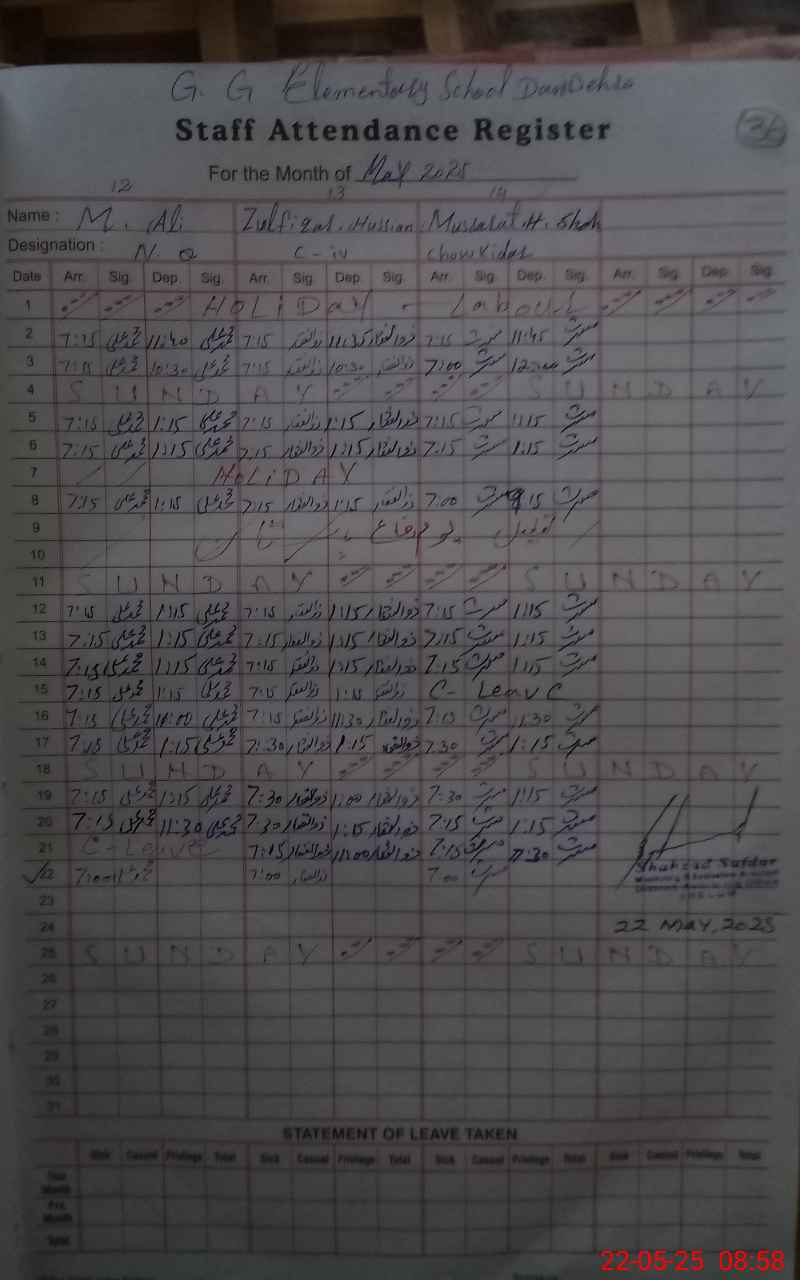 G. G Elementary School
Staff Attendance Register
36
For the Month of May 2025
12 13 14
Name : M. Ali Zulfiqar. Hussian Musarat. H. Shah
Designation : N. Q C-iv Chowkidar
Date Arr. Sig. Dep. Sig. Arr. Sig. Dep. Sig. Arr. Sig. Dep. Sig. Arr. Sig. Dep. Sig.
1 HOLIDAY - Labour
2 7:15 محمد علی 11:40 محمد علی 7:15 ذوالفقار 11:35 ذوالفقار 7:15 مسرت 11:45 مسرت
3 7:15 محمد علی 10:30 محمد علی 7:15 ذوالفقار 10:30 ذوالفقار 7:00 مسرت 12:00 مسرت
4 SUNDAY SUNDAY
5 7:15 محمد علی 1:15 محمد علی 7:15 ذوالفقار 1:15 ذوالفقار 7:15 مسرت 1:15 مسرت
6 7:15 محمد علی 1:15 محمد علی 7:15 ذوالفقار 1:15 ذوالفقار 7:15 مسرت 1:15 مسرت
7 HOLIDAY
8 7:15 محمد علی 1:15 محمد علی 7:15 ذوالفقار 1:15 ذوالفقار 7:00 مسرت 15 مسرت
9 تعطیل یوم دفاع پاکستان
10
11 SUNDAY SUNDAY
12 7:15 محمد علی 1:15 محمد علی 7:15 ذوالفقار 1:15 ذوالفقار 7:15 مسرت 1:15 مسرت
13 7:15 محمد علی 1:15 محمد علی 7:15 ذوالفقار 1:15 ذوالفقار 7:15 مسرت 1:15 مسرت
14 7:15 محمد علی 1:15 محمد علی 7:15 ذوالفقار 1:15 ذوالفقار 7:15 مسرت 1:15 مسرت
15 7:15 محمد علی 1:15 محمد علی 7:15 ذوالفقار 1:15 ذوالفقار C- Leave
16 7:15 محمد علی 11:00 محمد علی 7:15 ذوالفقار 11:30 ذوالفقار 7:15 مسرت 11:30 مسرت
17 7:15 محمد علی 1:15 محمد علی 7:30 ذوالفقار 1:15 ذوالفقار 7:30 مسرت 1:15 مسرت
18 SUNDAY SUNDAY
19 7:15 محمد علی 1:15 محمد علی 7:30 ذوالفقار 1:00 ذوالفقار 7:30 مسرت 1:15 مسرت
20 7:15 محمد علی 11:30 محمد علی 7:30 ذوالفقار 1:15 ذوالفقار 7:15 مسرت 1:15 مسرت
21 C-Leave 7:15 ذوالفقار 11:00 ذوالفقار 7:15 مسرت 11:30 مسرت
Shahzad Safdar
22 7:00 محمد علی 7:00 ذوالفقار 7:00 مسرت
23
24 22 MAY, 2025
25 SUNDAY SUNDAY
26
27
28
29
30
31
STATEMENT OF LEAVE TAKEN
Sick Casual Privilege Total Sick Casual Privilege Total Sick Casual Privilege Total Sick Casual Privilege Total
This Month
Pre. Month
Total
22-05-25 08:58